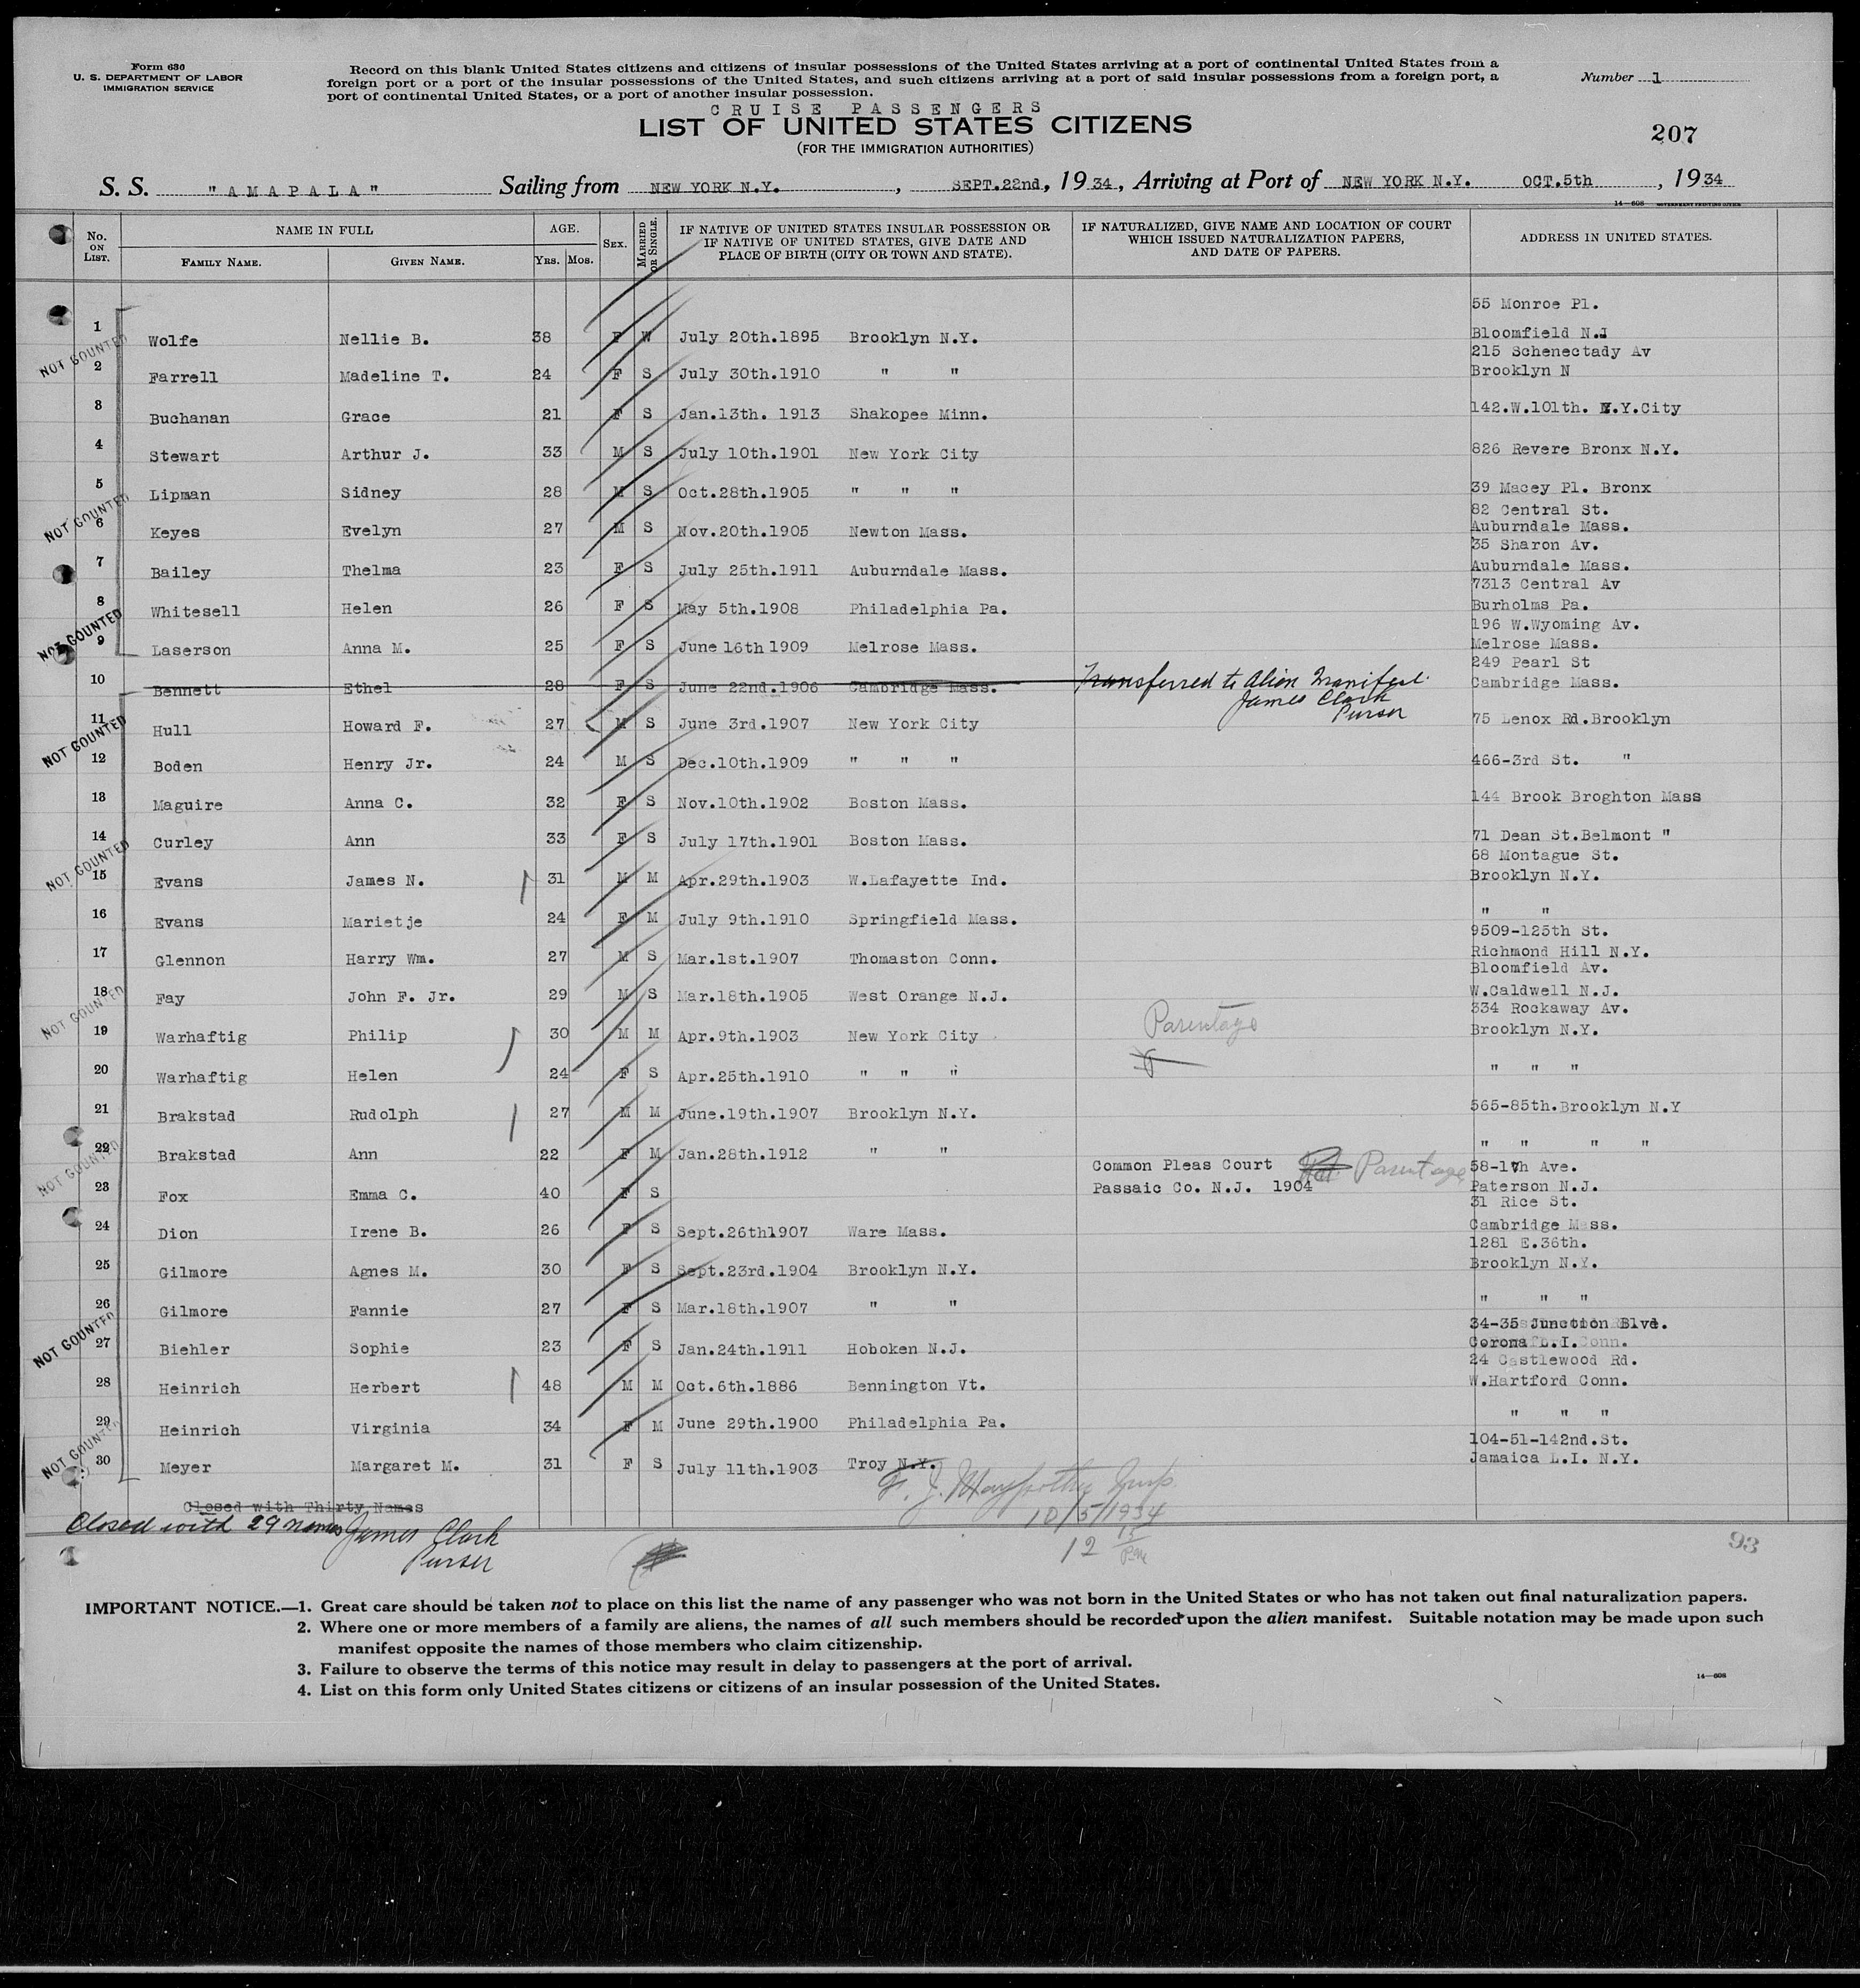 Form 630
U. S. DEPARTMENT OF LABOR
IMMIGRATION SERVICE
Record on this blank United States citizens and citizens of insular possessions of the United States arriving at a port of continental United States from a
foreign port or a port of the insular possessions of the United States, and such citizens arriving at a port of said insular possessions from a foreign port, a
port of continental United States, or a port of another insular possession.
Number 1
CRUISE PASSENGERS
LIST OF UNITED STATES CITIZENS
(FOR THE IMMIGRATION AUTHORITIES)
207
S. S. "AMAPALA" Sailing from NEW YORK N.Y. , SEPT.22nd, 1934, Arriving at Port of NEW YORK N.Y. OCT.5th , 1934
14—608 GOVERNMENT PRINTING OFFICE
No. ON LIST. NAME IN FULL FAMILY NAME. GIVEN NAME. AGE. YRS. MOS. SEX. MARRIED OR SINGLE. IF NATIVE OF UNITED STATES INSULAR POSSESSION OR IF NATIVE OF UNITED STATES, GIVE DATE AND PLACE OF BIRTH (CITY OR TOWN AND STATE). IF NATURALIZED, GIVE NAME AND LOCATION OF COURT WHICH ISSUED NATURALIZATION PAPERS, AND DATE OF PAPERS. ADDRESS IN UNITED STATES.
55 Monroe Pl.
1 Wolfe Nellie B. 38 F W July 20th.1895 Brooklyn N.Y. Bloomfield N.J
NOT COUNTED
215 Schenectady Av
2 Farrell Madeline T. 24 F S July 30th.1910 " " Brooklyn N
3 Buchanan Grace 21 F S Jan.13th. 1913 Shakopee Minn. 142.W.101th. N.Y.City
4 Stewart Arthur J. 33 M S July 10th.1901 New York City 826 Revere Bronx N.Y.
5 Lipman Sidney 28 M S Oct.28th.1905 " " " 39 Macey Pl. Bronx
NOT COUNTED
82 Central St.
6 Keyes Evelyn 27 M S Nov.20th.1905 Newton Mass. Auburndale Mass.
35 Sharon Av.
7 Bailey Thelma 23 F S July 25th.1911 Auburndale Mass. Auburndale Mass.
7313 Central Av
8 Whitesell Helen 26 F S May 5th.1908 Philadelphia Pa. Burholms Pa.
NOT COUNTED
196 W.Wyoming Av.
9 Laserson Anna M. 25 F S June 16th 1909 Melrose Mass. Melrose Mass.
249 Pearl St
10 Bennett Ethel 28 F S June 22nd.1906 Cambridge Mass. Transferred to Alien Manifest. Cambridge Mass.
James Clark
Purser
11 Hull Howard F. 27 M S June 3rd.1907 New York City 75 Lenox Rd.Brooklyn
NOT COUNTED
12 Boden Henry Jr. 24 M S Dec.10th.1909 " " " 466-3rd St. "
13 Maguire Anna C. 32 F S Nov.10th.1902 Boston Mass. 144 Brook Broghton Mass
14 Curley Ann 33 F S July 17th.1901 Boston Mass. 71 Dean St.Belmont "
NOT COUNTED
68 Montague St.
15 Evans James N. 31 M M Apr.29th.1903 W.Lafayette Ind. Brooklyn N.Y.
16 Evans Marietje 24 F M July 9th.1910 Springfield Mass. " "
9509-125th St.
17 Glennon Harry Wm. 27 M S Mar.1st.1907 Thomaston Conn. Richmond Hill N.Y.
Bloomfield Av.
18 Fay John F. Jr. 29 M S Mar.18th.1905 West Orange N.J. W.Caldwell N.J.
NOT COUNTED
334 Rockaway Av.
19 Warhaftig Philip 30 M M Apr.9th.1903 New York City Parentage Brooklyn N.Y.
20 Warhaftig Helen 24 F S Apr.25th.1910 " " " " " "
21 Brakstad Rudolph 27 M M June.19th.1907 Brooklyn N.Y. 565-85th.Brooklyn N.Y
22 Brakstad Ann 22 F M Jan.28th.1912 " " " " " "
NOT COUNTED
Common Pleas Court Parentage 58-17h Ave.
23 Fox Emma C. 40 F S Passaic Co. N.J. 1904 Paterson N.J.
31 Rice St.
24 Dion Irene B. 26 F S Sept.26th1907 Ware Mass. Cambridge Mass.
1281 E.36th.
25 Gilmore Agnes M. 30 F S Sept.23rd.1904 Brooklyn N.Y. Brooklyn N.Y.
26 Gilmore Fannie 27 F S Mar.18th.1907 " " " " "
NOT COUNTED
34-35 Junction Blvd.
27 Biehler Sophie 23 F S Jan.24th.1911 Hoboken N.J. Corona L.I.
24 Castlewood Rd.
28 Heinrich Herbert 48 M M Oct.6th.1886 Bennington Vt. W.Hartford Conn.
29 Heinrich Virginia 34 F M June 29th.1900 Philadelphia Pa. " " "
NOT COUNTED
104-51-142nd.St.
30 Meyer Margaret M. 31 F S July 11th.1903 Troy N.Y. Jamaica L.I. N.Y.
Closed with Thirty Names
Closed with 29 names James Clark
Purser
10/5/1934
12 15 PM
93
IMPORTANT NOTICE.—1. Great care should be taken not to place on this list the name of any passenger who was not born in the United States or who has not taken out final naturalization papers.
2. Where one or more members of a family are aliens, the names of all such members should be recorded upon the alien manifest. Suitable notation may be made upon such
manifest opposite the names of those members who claim citizenship.
3. Failure to observe the terms of this notice may result in delay to passengers at the port of arrival.
4. List on this form only United States citizens or citizens of an insular possession of the United States.
14—608